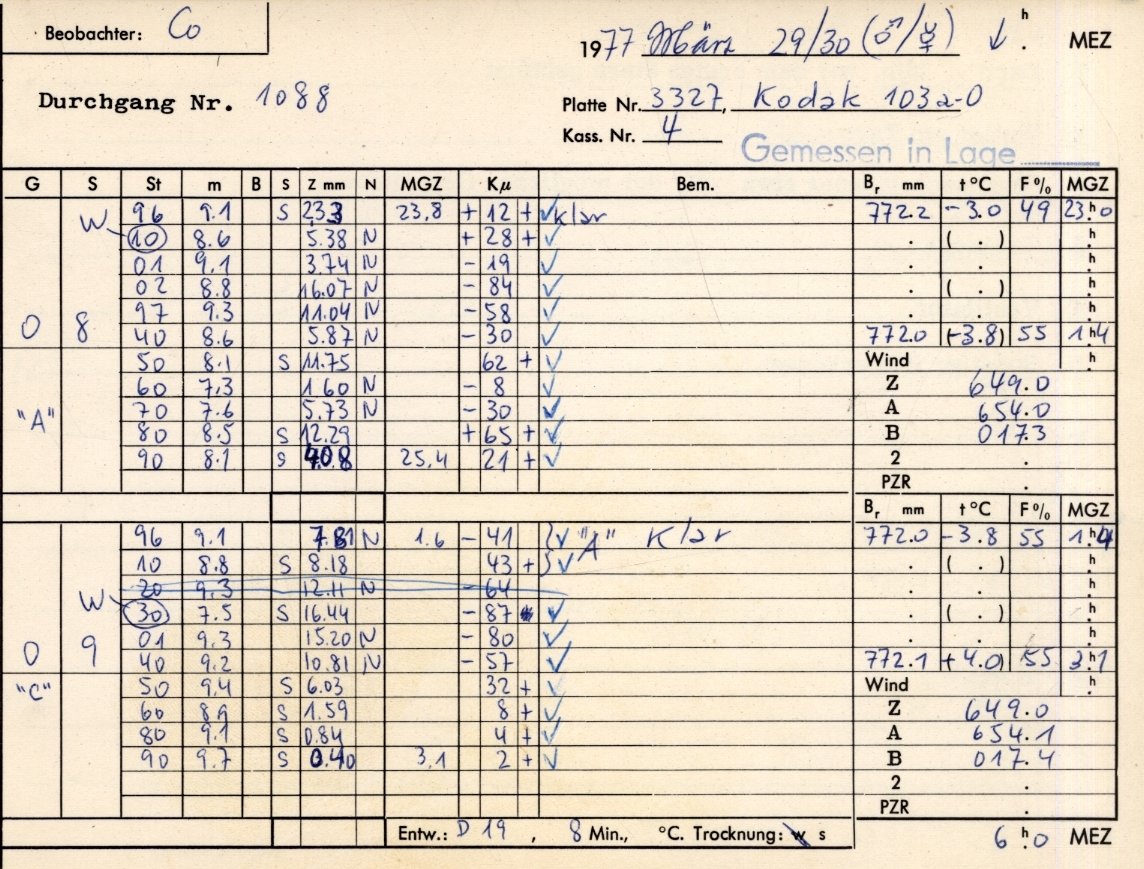 Beobachter: Co
1977 März 29/30 (♂/☿) ↓ h. MEZ
Durchgang Nr. 1088
Platte Nr. 3327, Kodak 103a-O
Kass. Nr. 4
Gemessen in Lage
G S St m B S Z mm N MGZ Kμ Bem. Br mm t °C F % MGZ
W 96 9.1 S 23,8 + 12 + ✓ klar 772.2 -3.0 49 23h0
10 8.6 5.38 N + 28 + ✓ . ( . ) h.
01 9.1 3.74 N - 19 ✓ . . h.
02 8.8 16.07 N - 84 ✓ . ( . ) h.
97 9.3 11.04 N - 58 ✓ . . h.
0 8 40 8.6 5.87 N - 30 ✓ 772.0 (-3.8) 55 1h4
50 8.1 S 11.75 62 + ✓ Wind h.
60 7.3 1.60 N - 8 ✓ Z 649.0
"A" 70 7.6 5.73 N - 30 ✓ A 654.0
80 8.5 S 12.29 + 65 + ✓ B 017.3
90 8.1 S 25,4 21 + ✓ 2 .
PZR .
Br mm t °C F % MGZ
96 9.1 7.81 N 1.6 - 41 } ✓ "A" Klar 772.0 -3.8 55 1h4
10 8.8 S 8.18 43 + } ✓ . ( . ) h.
20 9.3 12.11 N - 64 . . h.
W 30 7.5 S 16.44 - 87 ✓ . ( . ) h.
01 9.3 15.20 N - 80 ✓ . . h.
0 9 40 9.2 10.81 N - 57 ✓ 772.1 (+4.0) 55 3h1
"C" 50 9.4 S 6.03 32 + ✓ Wind h.
60 8.9 S 1.59 8 + ✓ Z 649.0
80 9.1 S 0.84 4 + ✓ A 654.1
90 9.7 S 0.40 3,1 2 + ✓ B 017.4
2 .
PZR .
Entw.: D 19 , 8 Min., °C. Trocknung: w s
6 h.0 MEZ